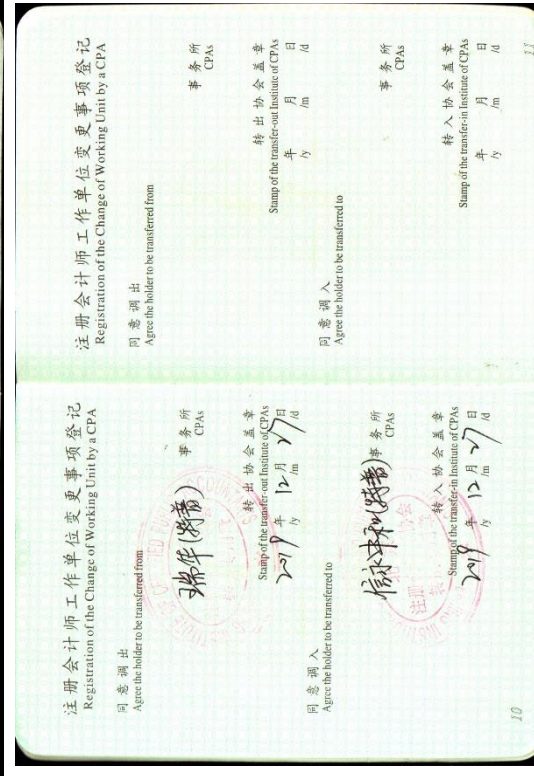 注册会计师工作单位变更事项登记
Registration of the Change of Working Unit by a CPA
同意调出
Agree the holder to be transferred from
瑞华(特普) 事务所
CPAs
转出协会盖章
Stamp of the transfer-out Institute of CPAs
2019年 12月 27日
/y /m /d
同意调入
Agree the holder to be transferred to
信永中和(特普)事务所
CPAs
转入协会盖章
Stamp of the transfer-in Institute of CPAs
2019年 12月 27日
/y /m /d
10
注册会计师工作单位变更事项登记
Registration of the Change of Working Unit by a CPA
同意调出
Agree the holder to be transferred from
事务所
CPAs
转出协会盖章
Stamp of the transfer-out Institute of CPAs
年 月 日
/y /m /d
同意调入
Agree the holder to be transferred to
事务所
CPAs
转入协会盖章
Stamp of the transfer-in Institute of CPAs
年 月 日
/y /m /d
11